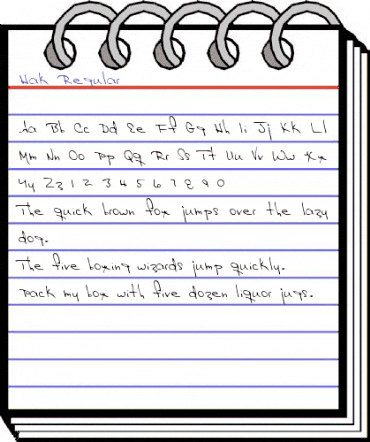 Wak Regular
Aa Bb Cc Dd Ee Ff Gg Hh Ii Jj Kk Ll
Mm Nn Oo Pp Qq Rr Ss Tt Uu Vv Ww Xx
Yy Zz 1 2 3 4 5 6 7 8 9 0
The quick brown fox jumps over the lazy
dog.
The five boxing wizards jump quickly.
Pack my box with five dozen liquor jugs.